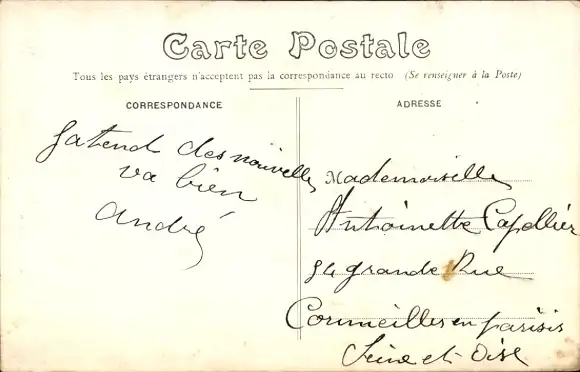 Carte Postale
Tous les pays étrangers n'acceptent pas la correspondance au recto (Se renseigner à la Poste)
CORRESPONDANCE
ADRESSE
J'atend des nouvelles
va bien
André
Mademoiselle
Antoinette Capellier
54 grande Rue
Cormeilles en parisis
Seine et Oise